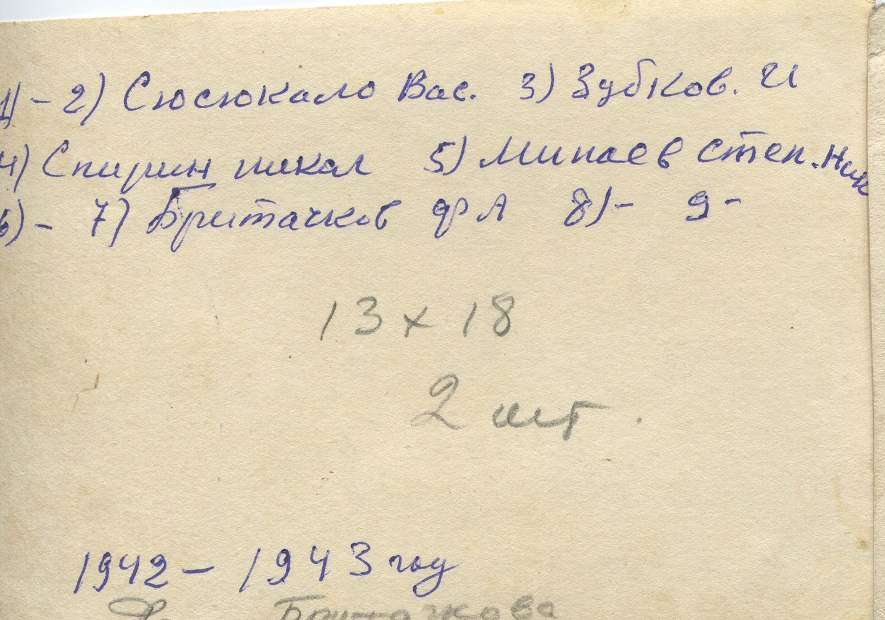 1) - 2) Сюсюкало Вас. 3) Зубков. И
4) Спирин никал 5) Минаев Степ. Ник
6) - 7) Бритачков ф А 8) - 9 -
13 x 18
2 шт.
1942 - 1943 год
Бритачкова